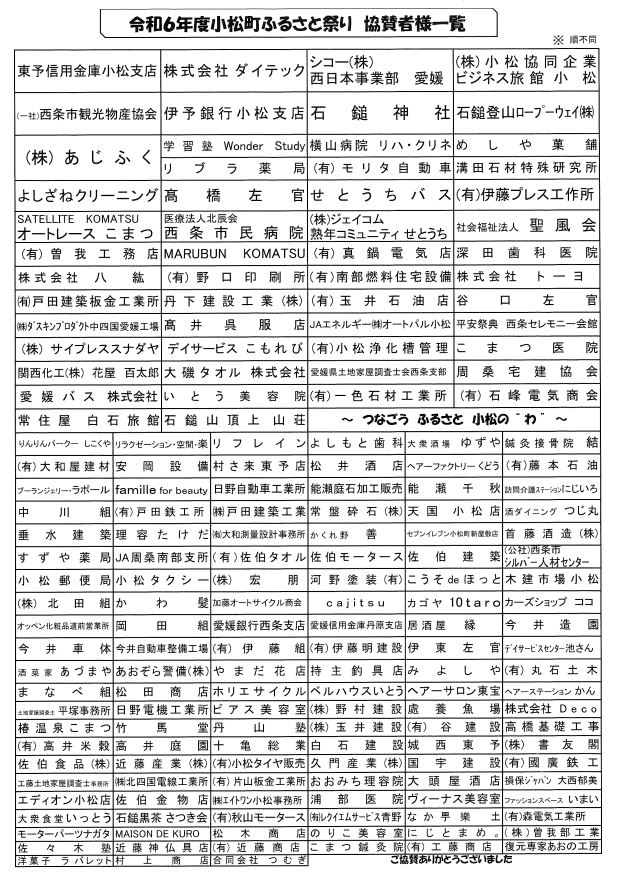 令和6年度小松町ふるさと祭り 協賛者様一覧
※ 順不同
東予信用金庫小松支店 株式会社ダイテック シコー(株)西日本事業部 愛媛 (株)小松協同企業 ビジネス旅館小松
(一社)西条市観光物産協会 伊予銀行小松支店 石鎚神社 石鎚登山ロープーウェイ㈱
(株)あじふく 学習塾 Wonder Study 横山病院 リハ・クリネ めしや菓舗
リブラ薬局 (有)モリタ自動車 溝田石材特殊研究所
よしざねクリーニング 髙橋左官 せとうちバス (有)伊藤プレス工作所
SATELLITE KOMATSU オートレース こまつ 医療法人北辰会 西条市民病院 (株)ジェイコム 熟年コミュニティ せとうち 社会福祉法人 聖風会
(有)曽我工務店 MARUBUN KOMATSU (有)真鍋電気店 深田歯科医院
株式会社 八紘 (有)野口印刷所 (有)南部燃料住宅設備 株式会社 トーヨ
㈲戸田建築板金工業所 丹下建設工業(株) (有)玉井石油店 谷口左官
㈱ダスキンプロダクト中四国愛媛工場 髙井呉服店 JAエネルギー㈱オートパル小松 平安祭典 西条セレモニー会館
(株)サイプレススナダヤ デイサービス こもれび (有)小松浄化槽管理 こまつ医院
関西化工(株) 花屋 百太郎 大磯タオル 株式会社 愛媛県土地家屋調査士会西条支部 周桑宅建協会
愛媛バス 株式会社 いとう美容院 (有)一色石材工業所 (有)石峰電気商会
常住屋 白石旅館 石鎚山頂上山荘 ～ つなごう ふるさと 小松の "わ" ～
りんりんパーク しこくや リラクゼーション・空間・楽 リフレイン よしもと歯科 大衆酒場 ゆずや 鍼灸接骨院 結
(有)大和屋建材 安岡設備 村さ来東予店 松井酒店 ヘアーファクトリーくどう (有)藤本石油
ブーランジェリー・ラポール famille for beauty 日野自動車工業所 能瀬庭石加工販売 能瀬千秋 訪問介護ステーションにじいろ
中川組 (有)戸田鉄工所 ㈱戸田建築工業 常盤砕石(株) 天国 小松店 酒ダイニング つじ丸
垂水建築 理容たけだ ㈲大和測量設計事務所 かくれ野 善 セブンイレブン小松町新屋敷店 首藤酒造(株)
すずや薬局 JA周桑南部支所 (有)佐伯タオル 佐伯モータース 佐伯建築 (公社)西条市シルバー人材センター
小松郵便局 小松タクシー (株)宏朋 河野塗装(有) こうそ de ほっと 木建市場小松
(株)北田組 かわ髪 加藤オートサイクル商会 cajitsu カゴヤ 10taro カーズショップ ココ
オッペン化粧品道前営業所 岡田組 愛媛銀行西条支店 愛媛信用金庫丹原支店 居酒屋 縁 今井造園
今井車体 今井自動車整備工場 (有)伊藤組 (有)伊藤明建設 伊東左官 デイサービスセンター池さん
酒菜家 あづまや あおぞら警備(株) やまだ花店 持主釣具店 みよしや (有)丸石土木
まなべ組 松田商店 ホリエサイクル ベルハウスいとう ヘアーサロン東宝 ヘアーステーション かん
土地家屋調査士 平塚事務所 日野電機工業所 ピアス美容室 (株)野村建設 處養魚場 株式会社 Deco
椿温泉こまつ 竹馬堂 丹山塾 (株)玉井建設 (有)谷建設 高橋基礎工事
(有)高井米穀 高井庭園 十亀総業 白石建設 城西東予 (株)書友閣
佐伯食品(株) 近藤産業(株) (有)小松タイヤ販売 久門産業(株) 国宇建設 (有)國廣鉄工
工藤土地家屋調査士事務所 ㈱北四国電線工業所 (有)片山板金工業所 おおみち理容院 大頭屋酒店 損保ジャパン 大西郁美
エディオン小松店 佐伯金物店 ㈱エイトワン小松事務所 浦部医院 ヴィーナス美容室 ファッションスペース いまい
大衆食堂いっとう 石鎚黒茶 さつき会 (有)秋山モータース ㈲レクイエムサービス青野 なか早樂土 (有)森電気工業所
モーターパーツナガタ MAISON DE KURO 松木商店 のりこ美容室 にじとまめ。 (株)曽我部工業
佐々木塾 近藤神仏具店 (有)近藤商店 こまつ鍼灸院 (有)工藤商店 復元専家あおの工房
洋菓子 ラパレット 村上商店 合同会社 つむぎ ご協賛ありがとうございました